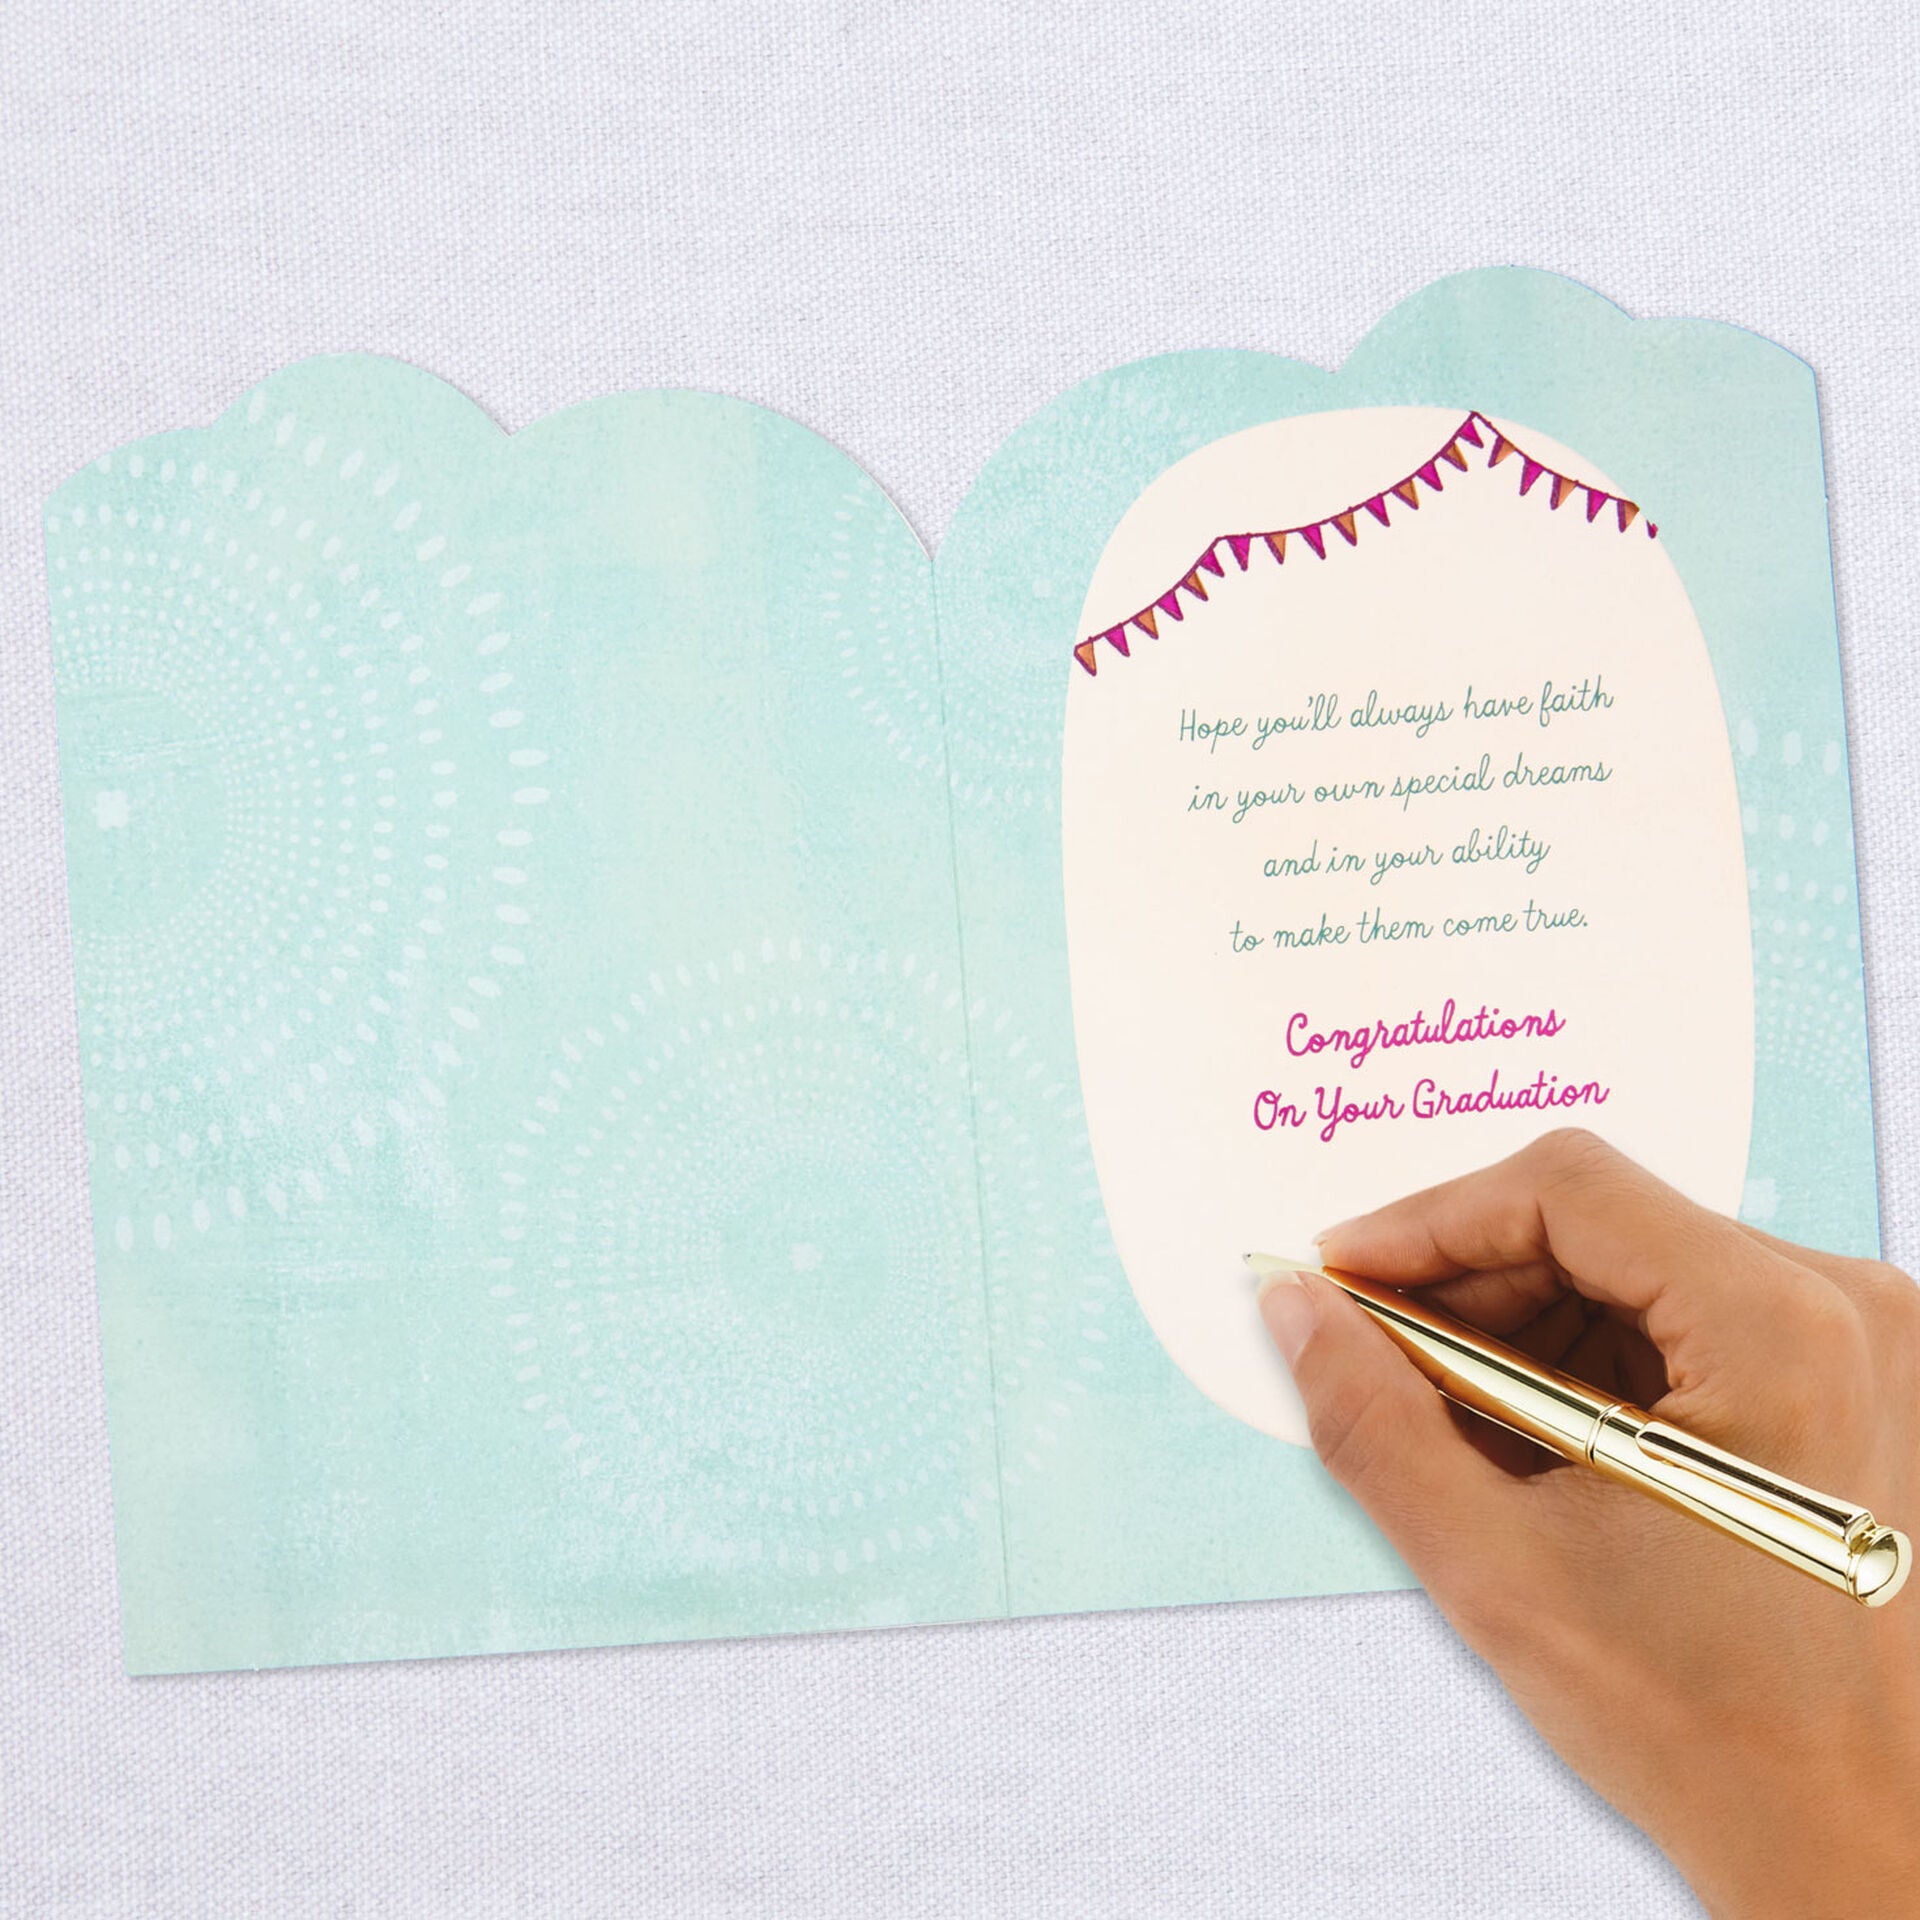 Hope you'll always have faith
in your own special dreams
and in your ability
to make them come true.
Congratulations
On Your Graduation